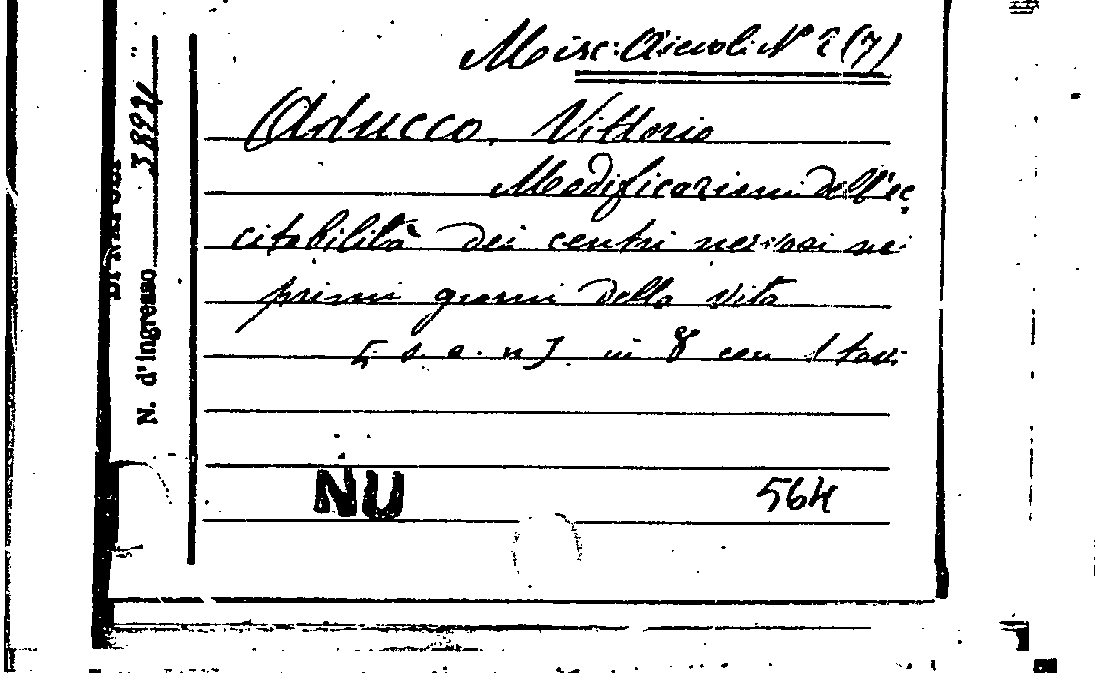 Misc: Airoli N° 2 (7)
Aducco, Vittorio
Modificazioni dell'ec
citabilità dei centri nervosi nei
primi giorni della vita
[s. a. n] in 8 con 1 tav.
NU 564
DI NAPOLI
N. d'ingresso 3892/